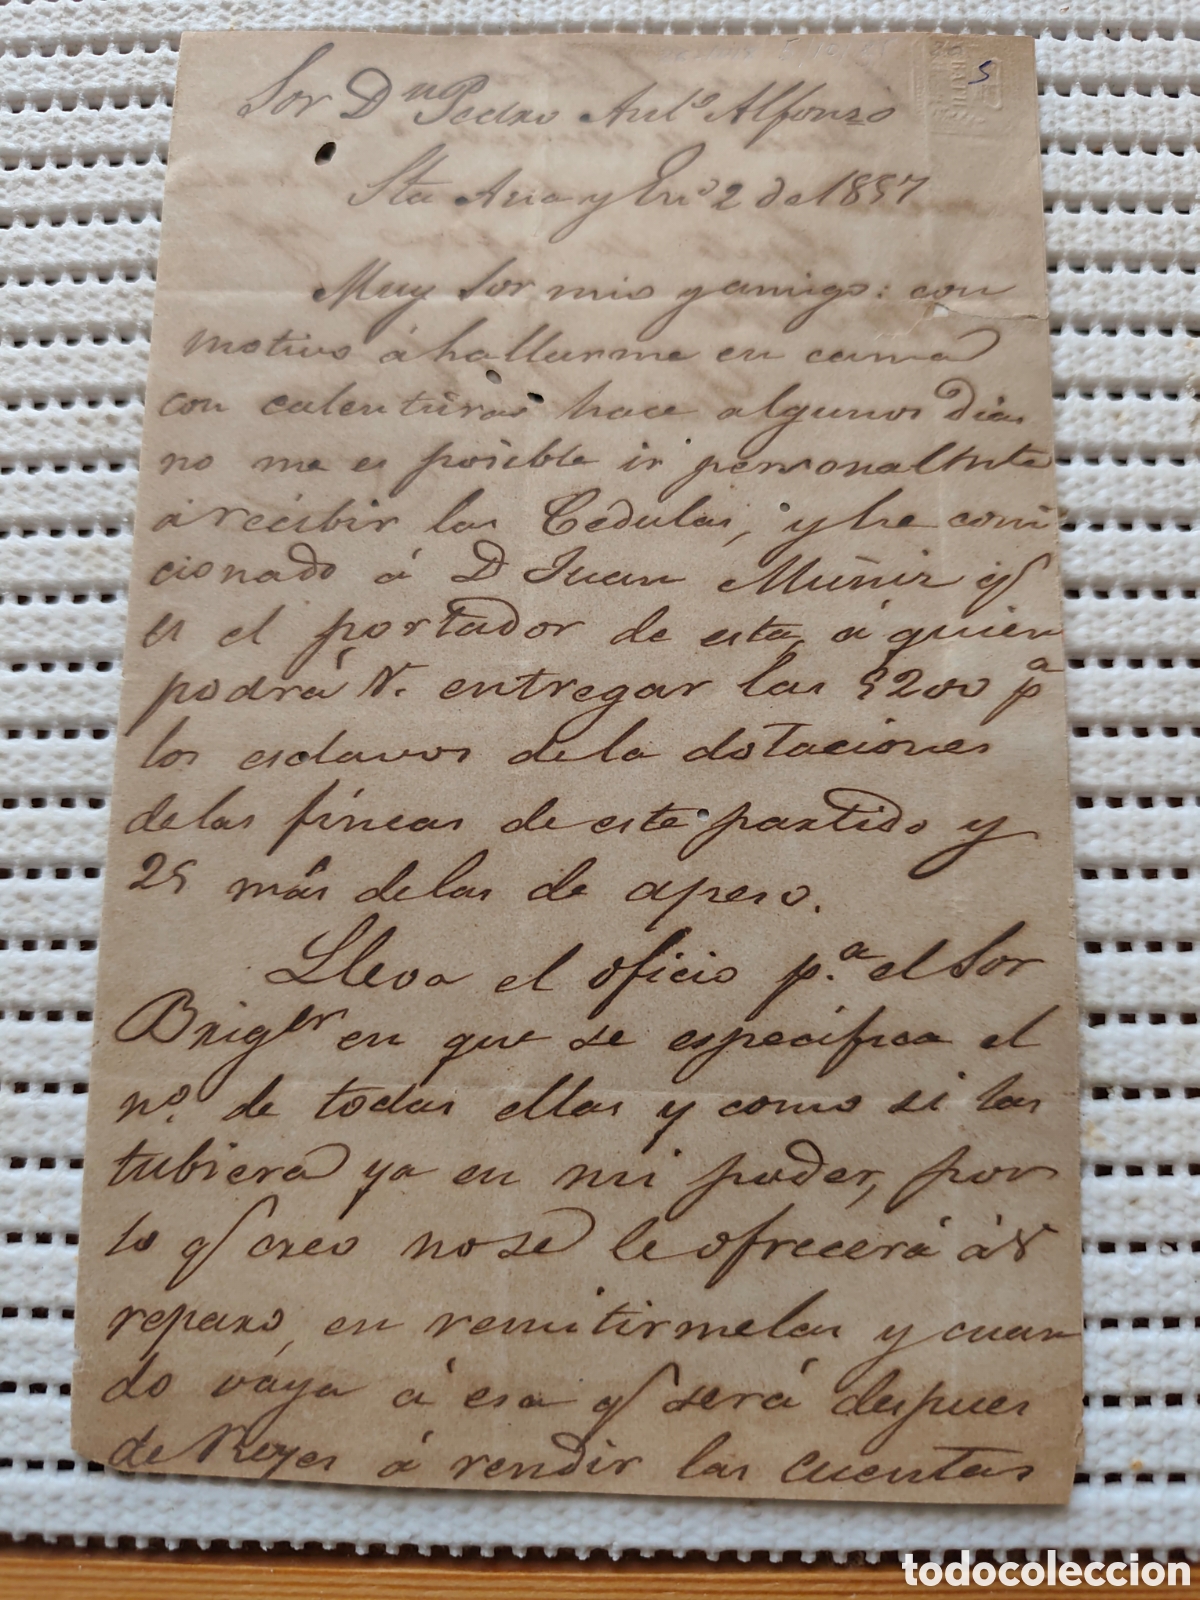 Sor Dn Pedro Anto Alfonzo
Sta Ana y Eno 2 de 1857
Muy Sor mio y amigo: con
motivo á hallarme en cama
con calenturas hace algunos dias
no me es posible ir personalmte
a recibir las Cedulas, y he comi
cionado á D Juan Muñiz q
es el portador de esta, á quien
podrá V. entregar las 5200 pa
los esclavos de la dotaciones
de las fincas de este partido y
25 más de las de a peso.
Lleva el oficio p.a el Sor
Briger en que se especifica el
no. de todas ellas y como si las
tubiera ya en mi poder, por
lo q creo no se le ofrecerá á V
reparo, en remitirmelas y cuan
do vaya á esa q será despues
de Reyes á rendir las cuentas
5
GRATIS
todocoleccion